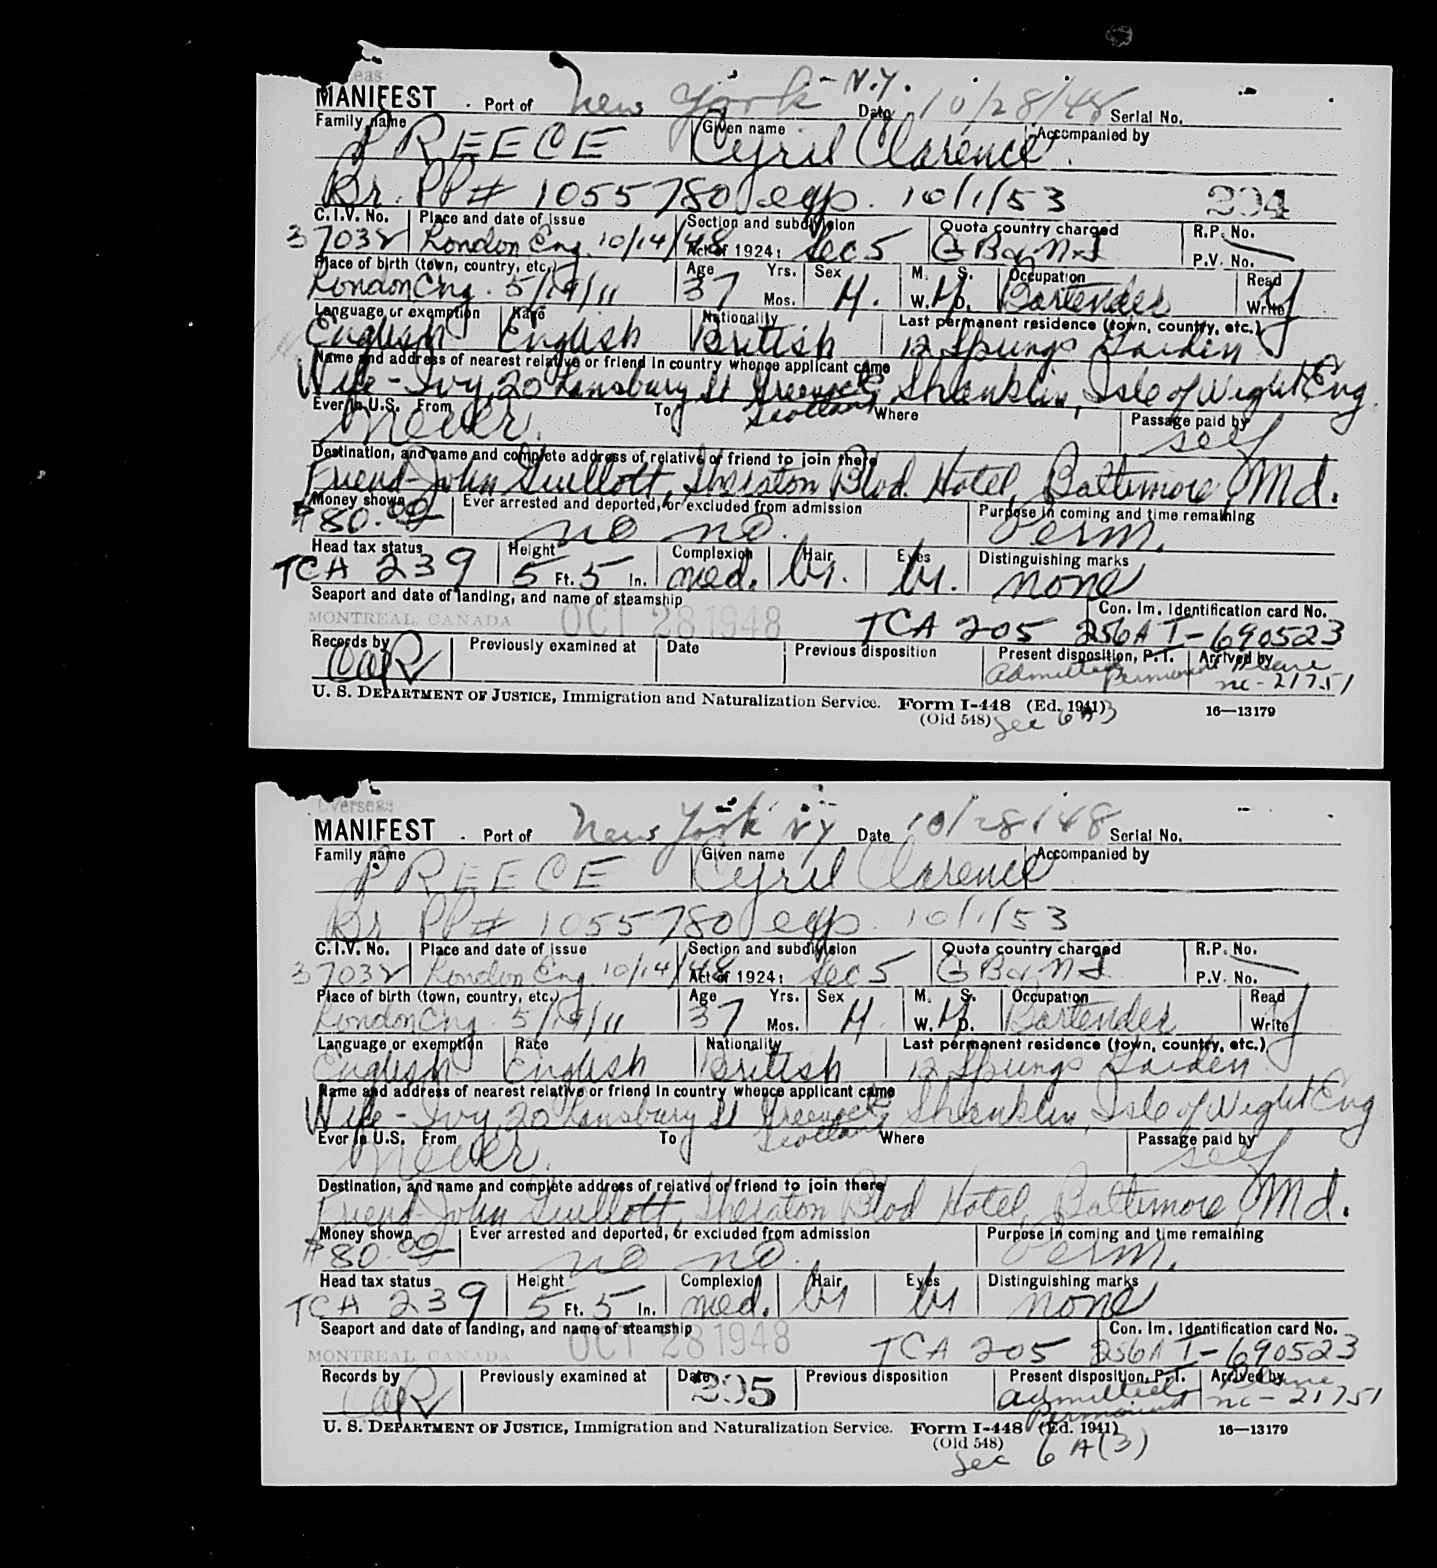 eas
MANIFEST . Port of New York - N.Y. Date 10/28/48 Serial No.
Family name PREECE Given name Cyril Clarence Accompanied by
Br. PP# 1055780 exp. 10/1/53 294
C.I.V. No. 37032 Place and date of issue London Eng. 10/14/48 Section and subdivision Act of 1924: Sec 5 Quota country charged G B & N I R.P. No. P.V. No.
Place of birth (town, country, etc.) London Eng. 5/19/11 Age 37 Yrs. Mos. Sex M. M. S. W. D. M Occupation Bartender Read Write y
Language or exemption English Race English Nationality British Last permanent residence (town, country, etc.) 12 Springs Garden
Name and address of nearest relative or friend in country whence applicant came
Wife - Ivy, 20 St Greenock Scotland Shanklin, Isle of Wight Eng.
Ever in U.S. From Never. To Where Passage paid by self
Destination, and name and complete address of relative or friend to join there
Friend-John Guillott, Sheraton Blvd. Hotel, Baltimore Md.
Money shown $80.00 Ever arrested and deported, or excluded from admission no no. Purpose in coming and time remaining Perm.
Head tax status TCA 239 Height 5 Ft. 5 In. Complexion med. Hair br. Eyes br. Distinguishing marks none
Seaport and date of landing, and name of steamship
MONTREAL, CANADA OCT 28 1948 TCA 205 Con. Im. Identification card No. 256A I-690523
Records by Previously examined at Date Previous disposition Present disposition, P.I. Admitted Permanent Arrived by Plane nc-21751
U. S. DEPARTMENT OF JUSTICE, Immigration and Naturalization Service. Form I-448 (Ed. 1941) 16—13179
(Old 548) Sec 6 A 3
Overseas
MANIFEST . Port of New York NY Date 10/28/48 Serial No.
Family name PREECE Given name Cyril Clarence Accompanied by
Br. PP# 1055780 exp. 10/1/53
C.I.V. No. 37032 Place and date of issue London Eng. 10/14/48 Section and subdivision Act of 1924: Sec 5 Quota country charged G B & N I R.P. No. P.V. No.
Place of birth (town, country, etc.) London Eng. 5/19/11 Age 37 Yrs. Mos. Sex M. M. S. W. D. M Occupation Bartender Read Write y
Language or exemption English Race English Nationality British Last permanent residence (town, country, etc.) 12 Springs Garden
Name and address of nearest relative or friend in country whence applicant came
Wife - Ivy, 20 St Greenock Scotland Shanklin, Isle of Wight Eng
Ever in U.S. From Never. To Where Passage paid by self
Destination, and name and complete address of relative or friend to join there
Friend-John Guillott, Sheraton Blvd Hotel, Baltimore Md.
Money shown $80.00 Ever arrested and deported, or excluded from admission no no. Purpose in coming and time remaining Perm.
Head tax status TCA 239 Height 5 Ft. 5 In. Complexion med. Hair br Eyes br Distinguishing marks none
Seaport and date of landing, and name of steamship
MONTREAL, CANADA OCT 28 1948 TCA 205 Con. Im. Identification card No. 256A I-690523
Records by Previously examined at Date 295 Previous disposition Present disposition, P.I. Admitted Permanent Arrived by Plane nc-21751
U. S. DEPARTMENT OF JUSTICE, Immigration and Naturalization Service. Form I-448 (Ed. 1941) 16—13179
(Old 548) Sec 6 A(3)